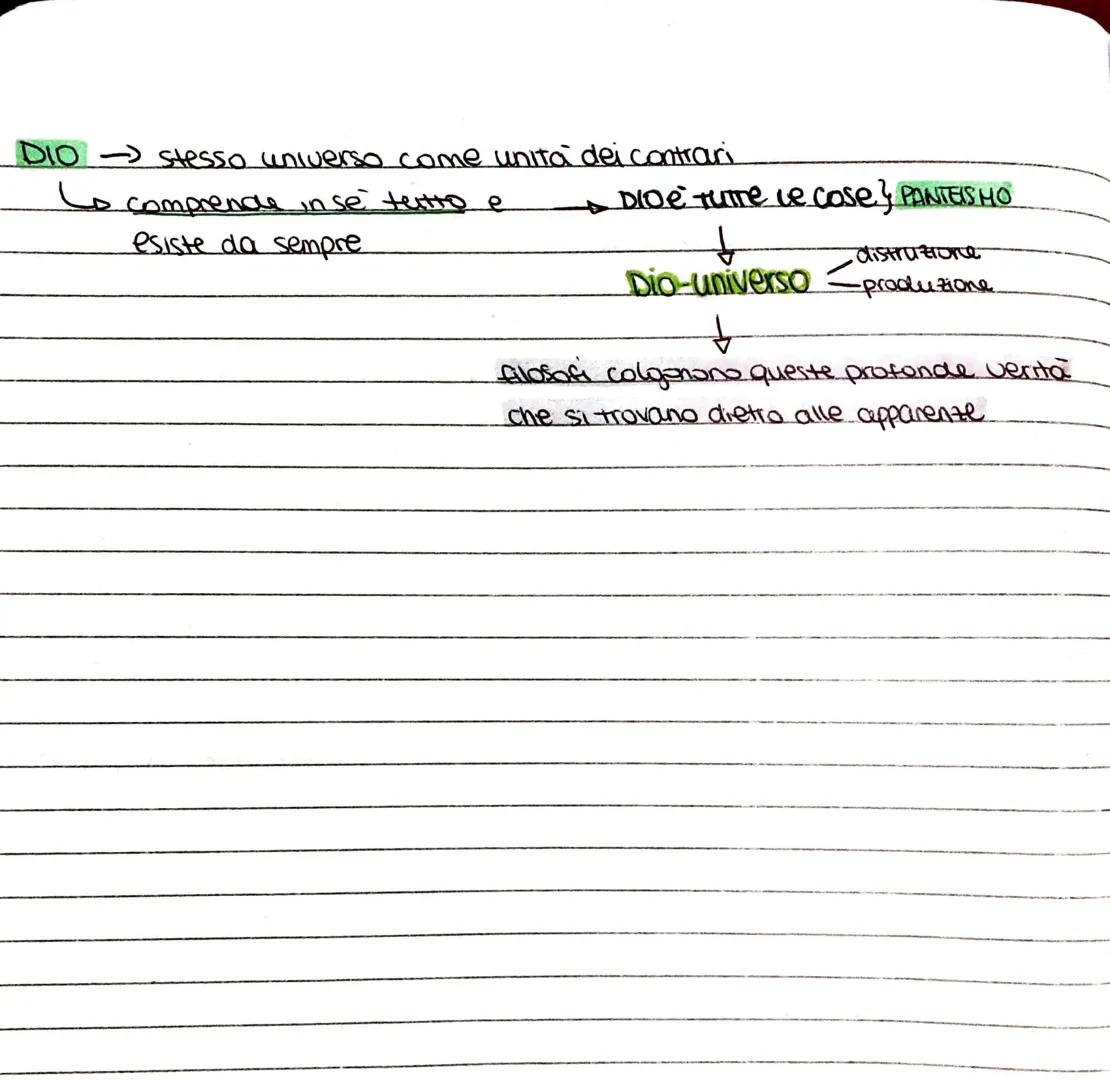 DIO → stesso universo come unità dei contrari
↳ comprende in sé tutto e → DIO È TUTTE LE COSE } PANTEISMO
esiste da sempre
↓ distruzione
Dio-universo < produzione
↓
filosofi colgonono queste profonde verità
che si trovano dietro alle apparenze